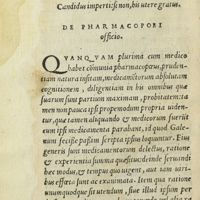 Candidus imperti: si non, his utere gratus.
DE PHARMACOPOEI
officio.
QVANQVAM plurima cum medico
habet cōmunia pharmacopœus, pruden
tiam natura insitam, medicamētorum absolutam
cognitionem, diligentiam in his omnibus quæ
suarum sunt partium maximam, probitatem: ta
men non pauca ipsi propemodum propria uiden
tur, quæ tamen aliquando & medicorum fuerīt
cum ipsi quoque ea pararent, id quod Gale
num fecisse passim scripta ipsius loquuntur. Eius
generis sunt medicamentorum delectus, ratione
& experientia summa quæsitus: deinde seruandi
hec modus, & tempus quo uigent, aut iam uiri
bus effœta sunt ac exanimata. Item qua ratione
unumquodque sit utendum, siue illud ipsum per